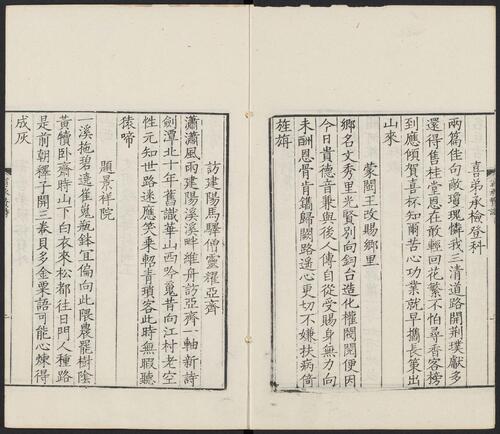 喜弟承檢登科
兩篇佳句敵瓊瑰憐我三清道路開荆璞獻多
還得售桂堂恩在敢輕回花繁不怕尋香客榜
到應傾賀喜杯知爾苦心功業就早攜長策出
山來
蒙閩王改賜鄉里
鄉名文秀里光賢别向鈞台造化權閥閱便因
今日貴德音兼與後人傳自從受賜身無力向
未酬恩骨肯鐫歸闕路遥心更切不嫌扶病倚
旌旃
訪建陽馬驛僧靈耀亞齊
瀟瀟風雨建陽溪溪畔維舟訪亞齊一軸新詩
劍潭北十年舊識華山西吟䰟昔向江村老空
性元知世路迷應笑乘軺青瑣客此時無暇聽
猿啼
題景祥院
一溪拖碧遶崔嵬瓶鉢宜偏向此隈農罷樹陰
黄犢卧齋時山下白衣來松都往日門人種路
是前朝釋子開三卷貝多金粟語可能心煉得
成灰